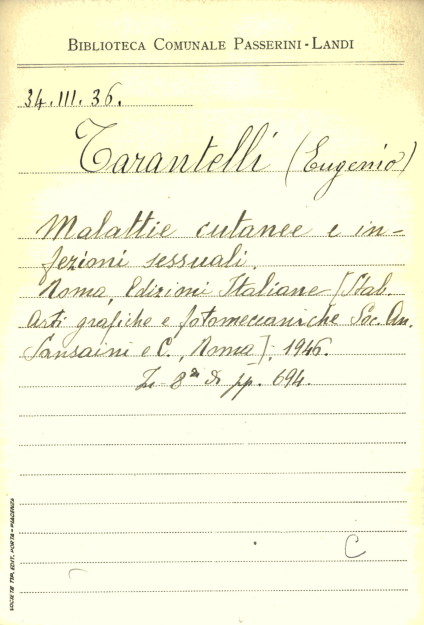 BIBLIOTECA COMUNALE PASSERINI-LANDI
34.III.36.
Tarantelli (Eugenio)
Malattie cutanee e in-
fezioni sessuali.
Roma, Edizioni Italiane [Stab.
Arti grafiche e fotomeccaniche Soc. An.
Sansaini e C., Roma], 1946.
In 8º di pp. 694.
C
SOCIETÀ TIP. EDIT. PORTA - PIACENZA